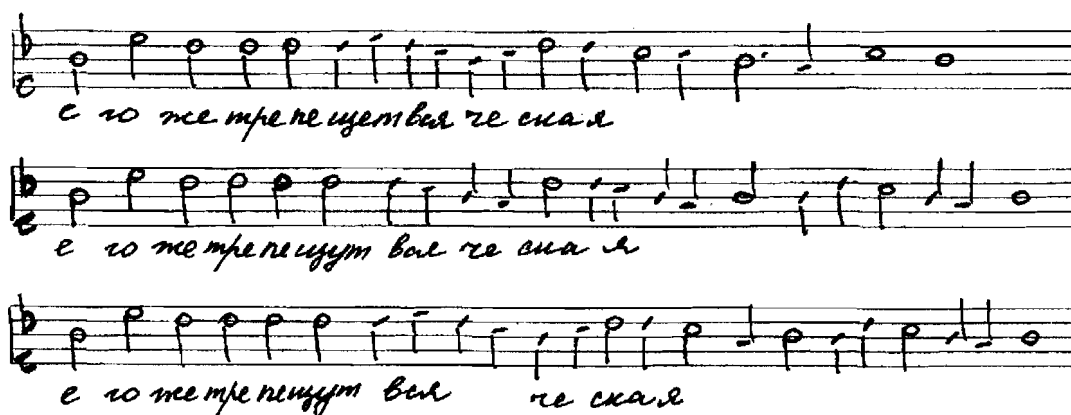 е го же трепещет вся че ская
е го же трепещут вся че ска я
е го же трепещут вся че ская